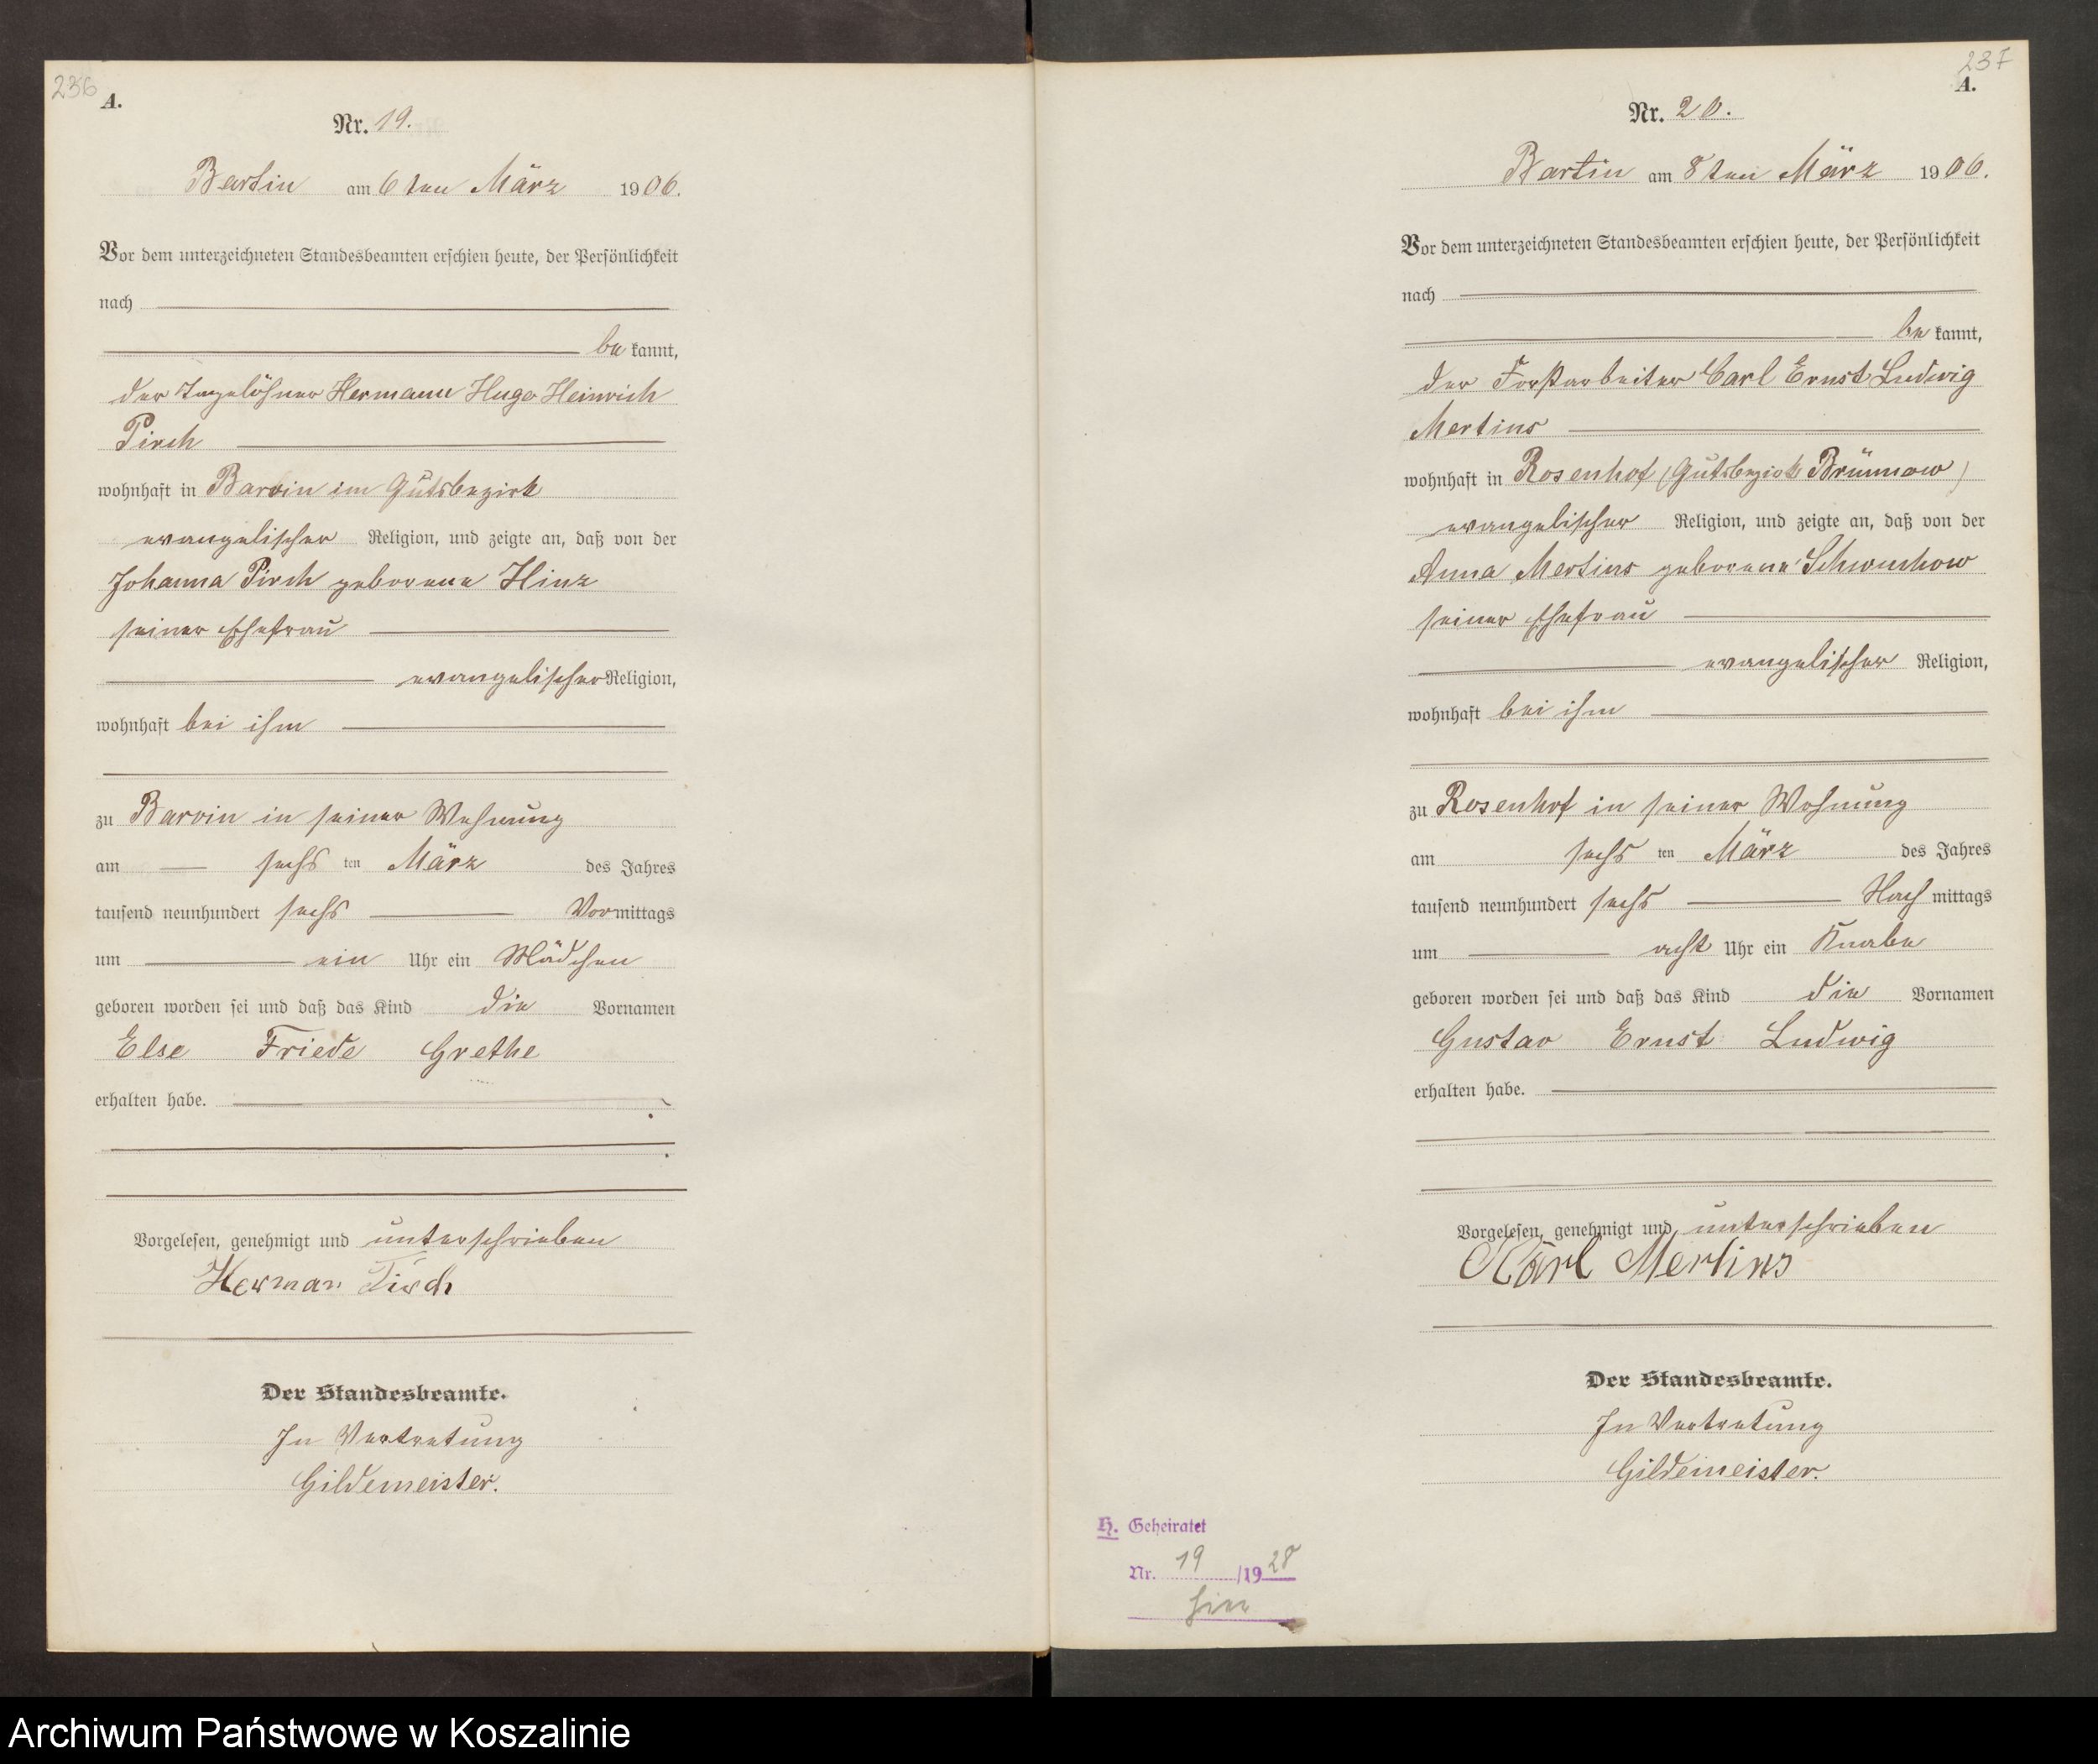 236
A.
Nr. 19.
Bartin am 6 ten März 1906.
Vor dem unterzeichneten Standesbeamten erschien heute, der Persönlichkeit
nach
be kannt,
der Tagelöhner Hermann Hugo Heinrich
Pirch
wohnhaft in Barvin im Gutsbezirk
evangelischer Religion, und zeigte an, daß von der
Johanna Pirch geborene Hinz
seiner Ehefrau
evangelischer Religion,
wohnhaft bei ihm
zu Barvin in seiner Wohnung
am sechs ten März des Jahres
tausend neunhundert sechs Vormittags
um ein Uhr ein Mädchen
geboren worden sei und daß das Kind die Vornamen
Else Friede Grethe
erhalten habe.
Vorgelesen, genehmigt und unterschrieben
Herman Pirch
Der Standesbeamte.
In Vertretung
Gildemeister.
237
A.
Nr. 20.
Bartin am 8 ten März 1906.
Vor dem unterzeichneten Standesbeamten erschien heute, der Persönlichkeit
nach
be kannt,
der Forstarbeiter Carl Ernst Ludwig
Mertins
wohnhaft in Rosenhof (Gutsbezirk Brünnow)
evangelischer Religion, und zeigte an, daß von der
Anna Mertins geborene Schwuchow
seiner Ehefrau
evangelischer Religion,
wohnhaft bei ihm
zu Rosenhof in seiner Wohnung
am sechs ten März des Jahres
tausend neunhundert sechs Nach mittags
um acht Uhr ein Knabe
geboren worden sei und daß das Kind die Vornamen
Gustav Ernst Ludwig
erhalten habe.
Vorgelesen, genehmigt und unterschrieben
Karl Mertins
Der Standesbeamte.
In Vertretung
Gildemeister.
H. Geheiratet
Nr. 19 /1928
hier
Archiwum Państwowe w Koszalinie